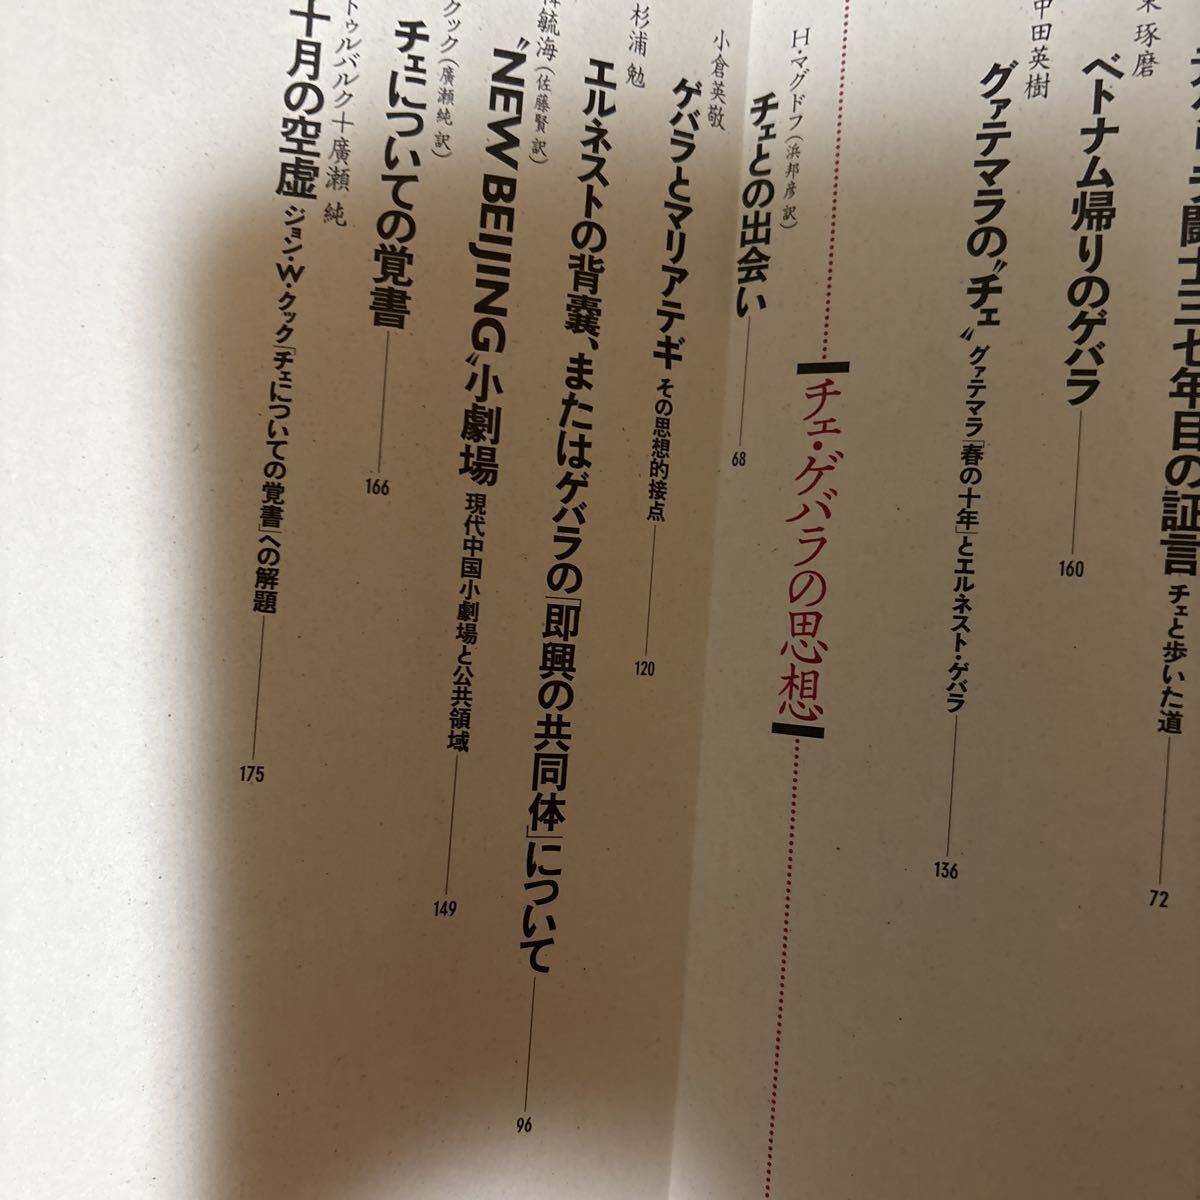 三七年目の証言 チェと歩いた道
72
琢磨
ベトナム帰りのゲバラ
160
中田英樹
グァテマラの〝チェ〟 グァテマラ「春の十年」とエルネスト・ゲバラ
136
チェ・ゲバラの思想
H・マグドフ(浜邦彦 訳)
チェとの出会い
68
小倉英敬
ゲバラとマリアテギ その思想的接点
120
杉浦 勉
エルネストの背嚢、またはゲバラの「即興の共同体」について
96
毓海(佐藤賢 訳)
〝NEW BEIJING〟小劇場 現代中国小劇場と公共領域
149
クック(廣瀬純 訳)
チェについての覚書
166
トゥルバルク+廣瀬 純
十月の空虚 ジョン・W・クック「チェについての覚書」への解題
175